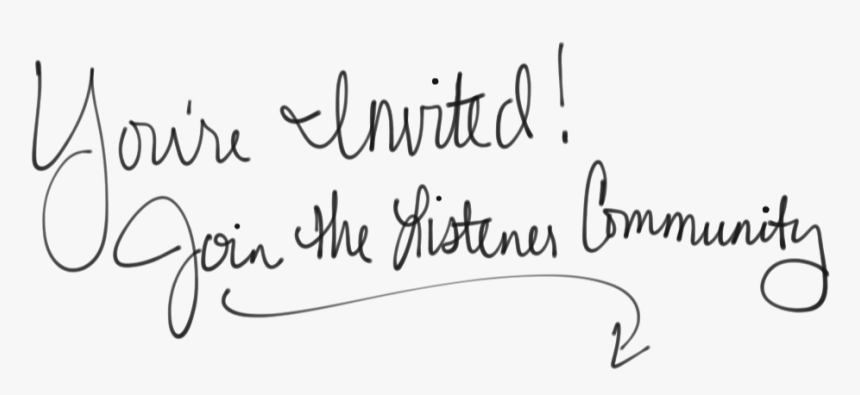 You're Invited!
Join the Listener Community